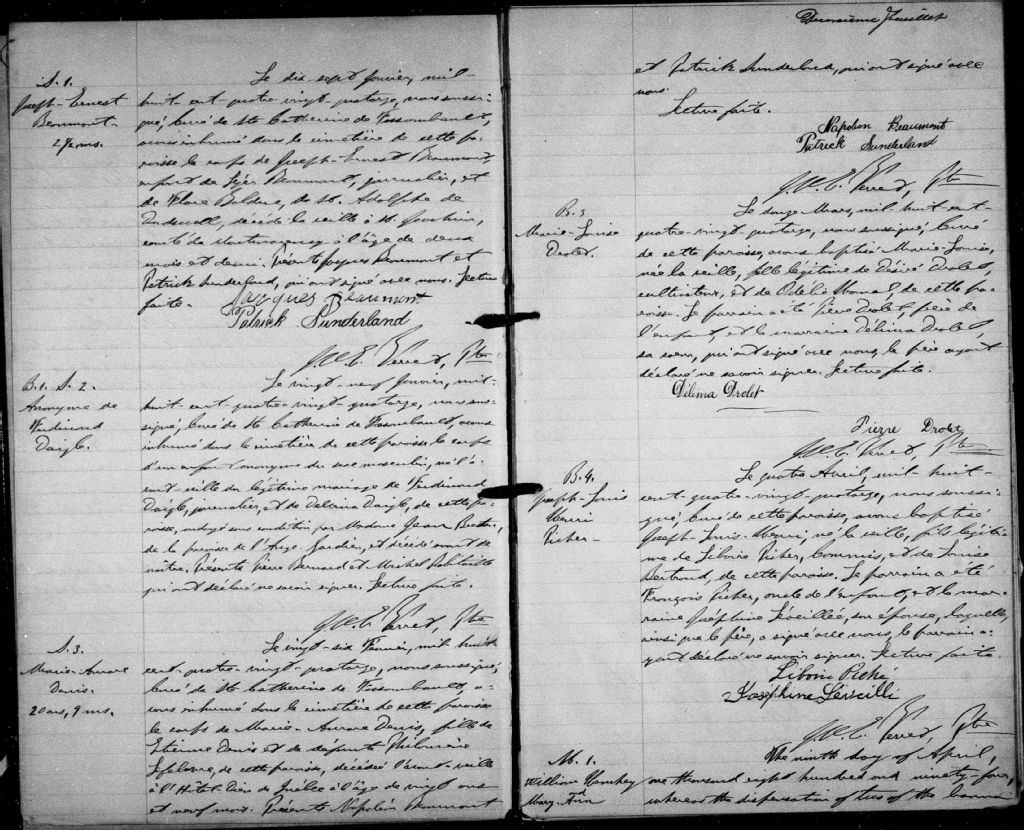 S. 1.
Joseph-Ernest
Beaumont
2½ ms.
Le dix sept Janvier, mil-
huit-cent-quatre-vingt-quatorze, nous soussi-
gné, Curé de Ste Catherine de Fossambault,
avons inhumé dans le cimetière de cette pa-
roisse le corps de Joseph-Ernest Beaumont,
enfant de Beaumont, journalier, et
de de St. Adolphe de
décédé la veille à St. Joachim,
comté de Montmorency à l'âge de deux
mois et demi. Présents Jacques Beaumont et
Patrick Sunderland, qui ont signé avec nous. Lecture
faite.
Jacques Beaumont
Patrick Sunderland
Ptre
B. 1. S. 2.
Anonyme de
Ferdinand
Daigle.
Le vingt-neuf Janvier, mil-
huit-cent-quatre-vingt-quatorze, nous sous-
signé, Curé de Ste Catherine de Fossambault, avons
inhumé dans le cimetière de cette paroisse le corps
d'un enfant anonyme du sexe masculin, né l'a-
vant-veille du légitime mariage de Ferdinand
Daigle, journalier, et de Délina Daigle, de cette pa-
roisse, ondoyé sous condition par Madame Jean
de la paroisse de l'Ange-Gardien, et décédé avant de
naître. Présents Pierre Bernard et Michel
qui ont déclaré ne savoir signer. Lecture faite.
Ptre
S. 3.
Marie-Aurore
Denis.
20 ans, 9 ms.
Le vingt-six Février, mil huit
cent-quatre-vingt-quatorze, nous soussigné,
Curé de Ste Catherine de Fossambault, a-
vons inhumé dans le cimetière de cette paroisse
le corps de Marie-Aurore Denis, fille de
Etienne Denis et de défunte Philomène
Lefebvre, de cette paroisse, décédée l'avant-veille
à l'Hôtel-Dieu de Québec à l'âge de vingt ans
et neuf mois. Présents Napoléon Beaumont
Deuxième feuillet
et Patrick Sunderland, qui ont signé avec
nous.
Lecture faite.
Napoléon Beaumont
Patrick Sunderland
Ptre
B. 3
Marie-Louise
Drolet.
Le douze Mars, mil-huit-cent-
quatre-vingt-quatorze, nous soussigné, Curé
de cette paroisse, avons baptisé Marie-Louise,
née la veille, fille légitime de Désiré Drolet,
cultivateur, et de Odélie de cette pa-
roisse. Le parrain a été Pierre Drolet, frère de
l'enfant, et la marraine Délima Drolet,
sa soeur, qui ont signé avec nous, le père ayant
déclaré ne savoir signer. Lecture faite.
Délima Drolet
Pierre Drolet
Ptre
B. 4.
Joseph-Louis
Henri
Picher
Le quatre Avril, mil-huit-
cent-quatre-vingt-quatorze, nous soussi-
gné, Curé de cette paroisse, avons baptisé
Joseph-Louis-Henri, né la veille, fils légiti-
me de Liboire Picher, commis, et de Louise
Bertrand, de cette paroisse. Le parrain a été
François Picher, oncle de l'enfant, et la mar-
raine Joséphine Léveillée, son épouse, laquelle,
ainsi que le père, a signé avec nous, le parrain a-
yant déclaré ne savoir signer. Lecture faite.
Liboire Piché
Joséphine Léveillé
Ptre
M. 1.
William
&
Mary-Ann
The ninth day of April,
one thousand eight hundred and ninety-four,
whereas the dispensation of two of the banns